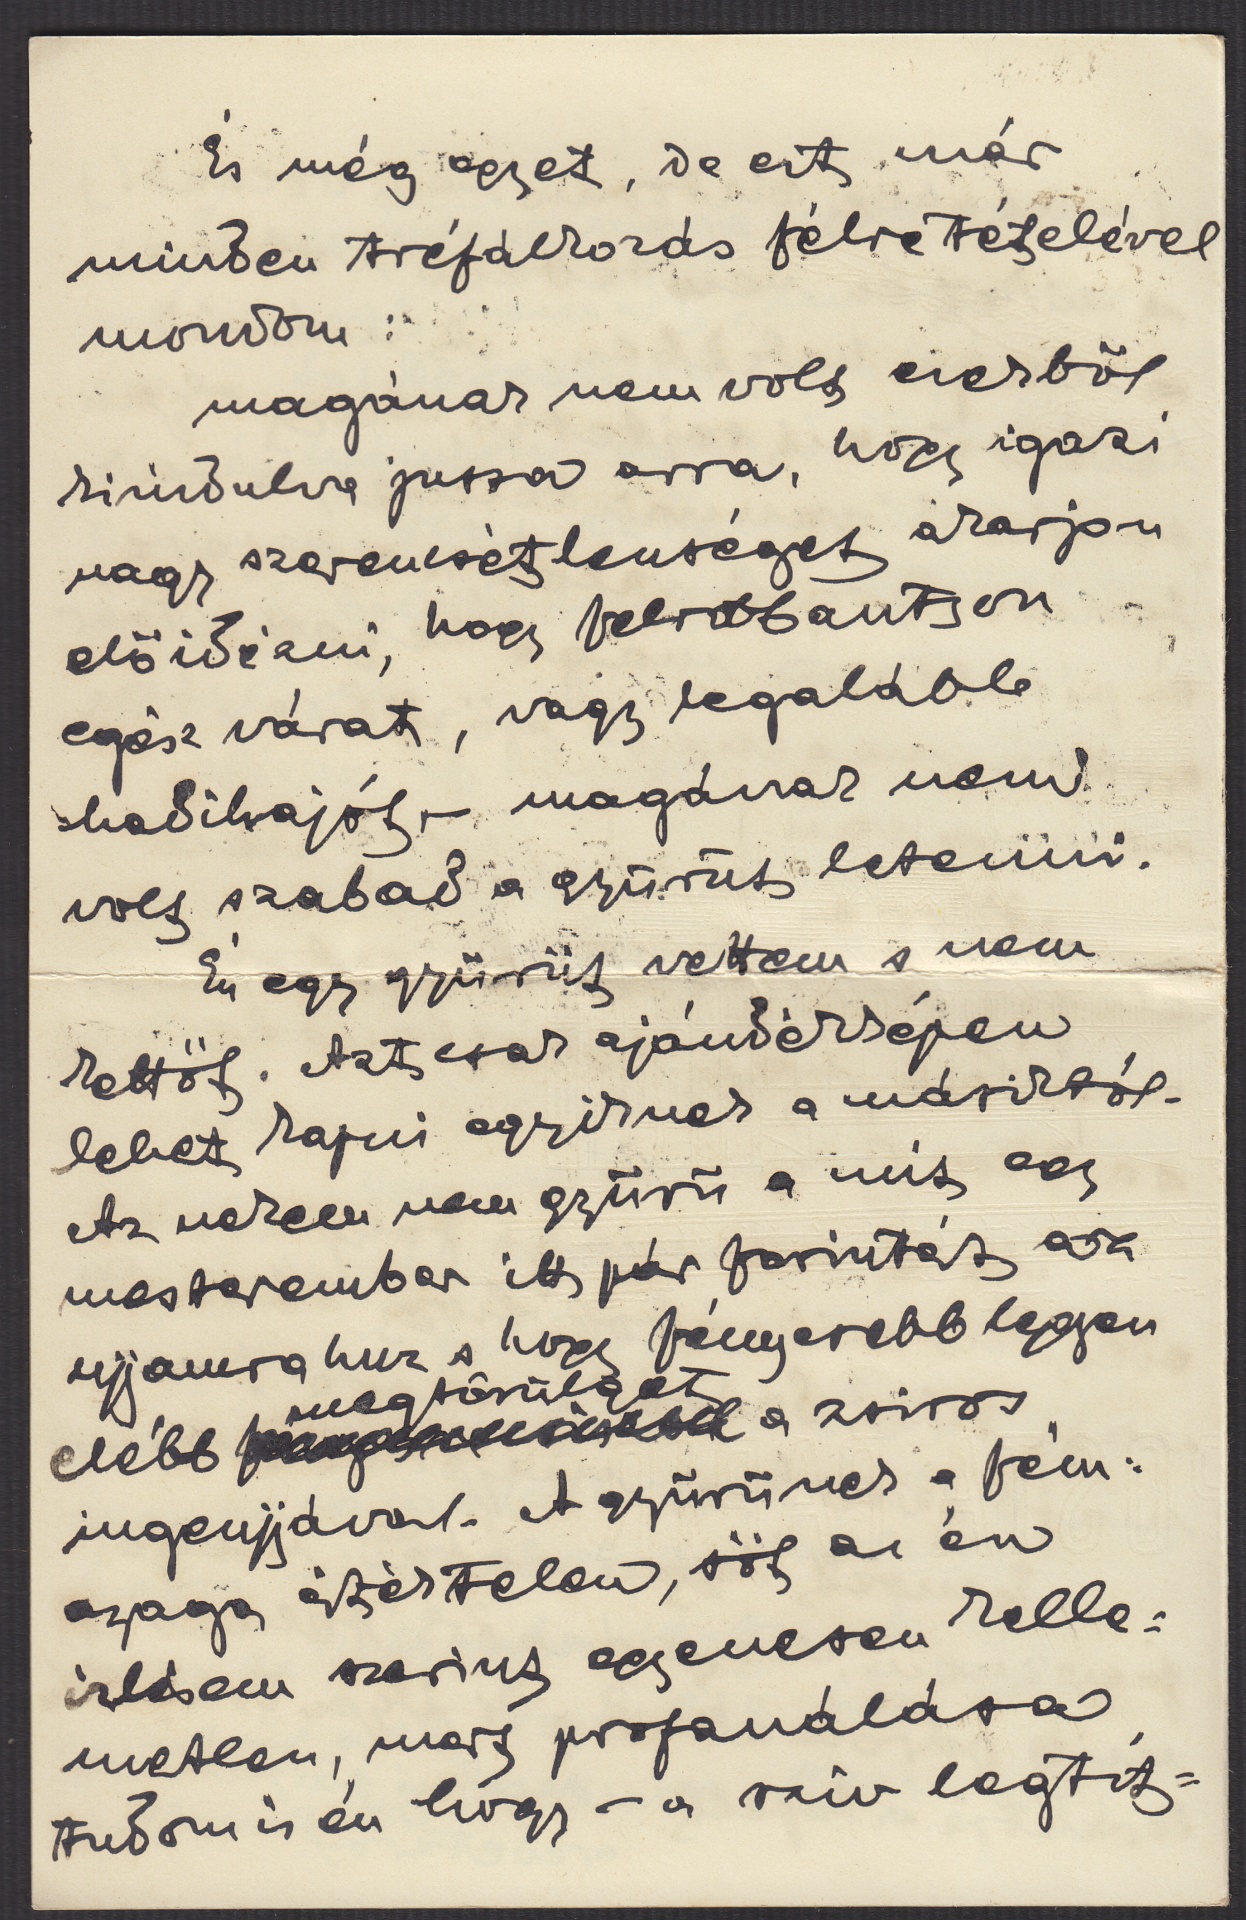 És még egyet, de ezt már
minden tréfálkozás félretételével
mondom:
magának nem volt ezekből
kiindulva jussa arra, hogy igazi
nagy szerencsétlenséget akarjon
előidézni, hogy felrobbantson
egész várat, vagy legalább
hadihajót, – magának nem
volt szabad a gyűrűt letenni.
Én egy gyűrűt vettem s nem
kettőt. Azt csak ajándékképen
lehet kapni egyiknek a másiktól.
Az nekem nem gyűrű a mit egy
mesterember itt pár forintért az
ujjamra huz s hogy fényesebb legyen
elébb megtörülget a zsiros
ingenyjával. A gyűrűnek a fém-
anyaga értéktelen, sőt az én
izlésem szerint egyenesen kelle=
metlen, mert profanálása
tudom is én hogy – a sziv legtit=